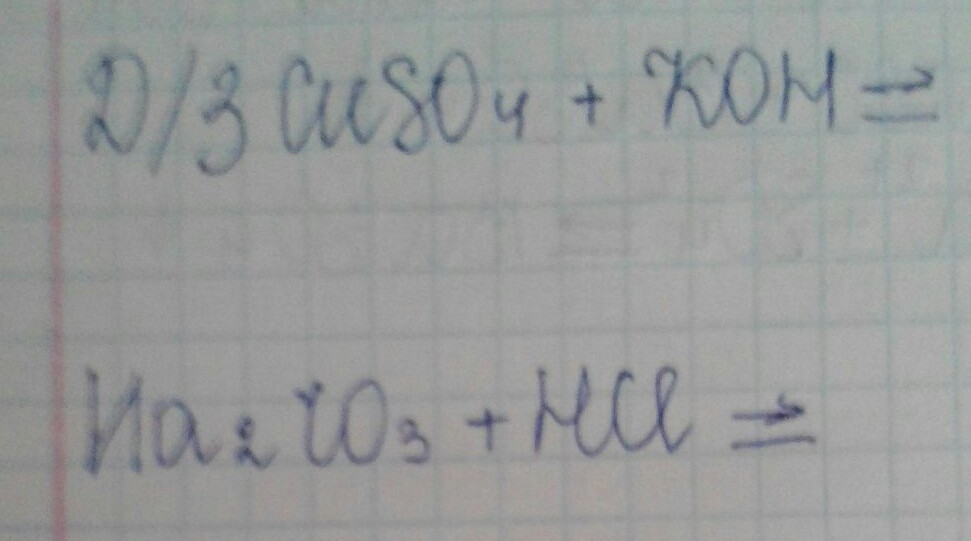 Д/З CuSO₄ + KOH ⇒
Na₂CO₃ + HCl ⇒